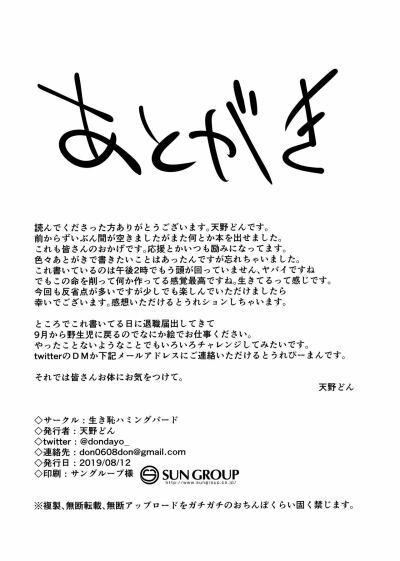 あとがき
読んでくださった方ありがとうございます。天野どんです。
前からずいぶん間が空きましたがまた何とか本を出せました。
これも皆さんのおかげです。応援とかいつも励みになってます。
色々あとがきで書きたいことはあったんですが忘れちゃいました。
これ書いているのは午後2時でもう頭が回っていません、ヤバイですね
でもこの命を削って何か作ってる感覚最高ですね。生きてるって感じです。
今回も反省点が多いですが少しでも楽しんでいただけましたら
幸いでございます。感想いただけるとうれションしちゃいます。
ところでこれ書いてる日に退職届出してきて
9月から野生児に戻るのでなにか絵でお仕事ください。
やったことないようなことでもいろいろチャレンジしてみたいです。
twitterのDMか下記メールアドレスにご連絡いただけるとうれぴーまんです。
それでは皆さんお体にお気をつけて。
天野どん
◇サークル：生き恥ハミングバード
◇発行者：天野どん
◇twitter：@dondayo_
◇連絡先：don0608don@gmail.com
◇発行日：2019/08/12
◇印刷：サングループ様
SUN GROUP
http://www.sungroup.co.jp/
※複製、無断転載、無断アップロードをガチガチのおちんぽくらい固く禁じます。